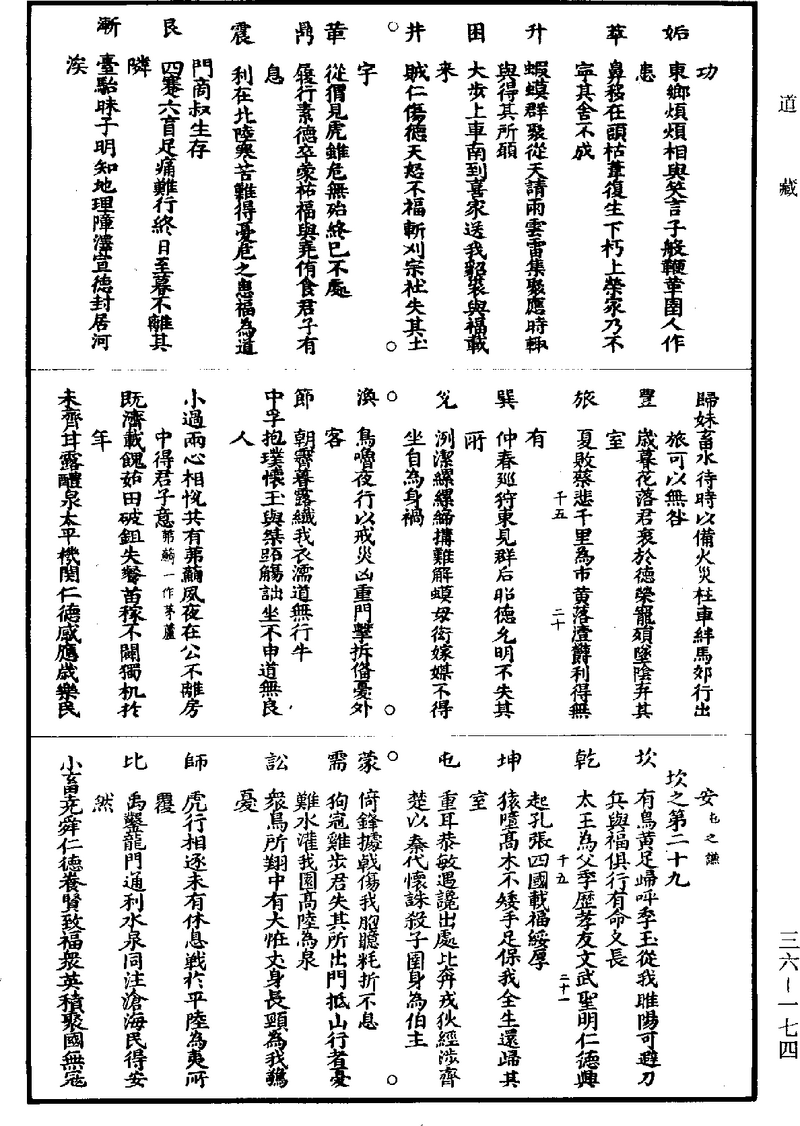 道藏
功
姤　東鄉煩煩相與笑言子般鞭華圉人作
患
萃　鼻移在頭枯葦復生下朽上榮家乃不
寧其舍不成
升　蝦蟆群聚從天請雨雲雷集聚應時輒
與得其所願
困　大步上車南到喜家送我貂裘與福載
来
井　賊仁傷德天怒不福斬刈宗社失其土
宇
革　從猬見虎雖危無殆終已不處
鼎　履行素德卒蒙祐福與堯侑食君子有
息
震　利在北陸寒苦難得憂危之患福為道
門商叔生存
艮　四蹇六盲足痛難行終日至暮不離其
隣
漸　臺駘昧子明知地理障澤宣德封居河
涘
歸妹畜水待時以備火災柱車絆馬郊行出
旅可以無咎
豐　歲暮花落君衰於德榮寵殞墜陰弃其
室
旅　夏敗蔡悲千里為市黄落澶欝利得無
有　千五　二十
巽　仲春廵狩東見群后昭德允明不失其
所
兌　洌潔縲縲締搆難解嫫母衒嫁媒不得
坐自為身禍
渙　鳥嚕夜行以戒災凶重門擊拆俻憂外
客
節　朝霽暮露纖我衣濡道無行牛
中孚抱璞懷玉與桀跖觴詘坐不申道無良
人
小過兩心相悅共有茅蘭夙夜在公不離房
中得君子意茅蘭一作茅蘆
既濟載餽如田破鉏失餐苗稼不闢獨机於
年
未齊甘露醴泉太平機関仁德感應歲樂民
安屯之謙
坎之第二十九
坎　有鳥黄足歸呼季玉從我睢陽可避刀
兵與福俱行有命久長
乾　太王為父季歷孝友文武聖明仁德興
起孔張四國載福綏厚　千五　二十一
坤　猿噎高木不矮手足保我金生還歸其
室
屯　重耳恭敏遇讒出處比奔戎狄經涉齊
楚以秦代懷誅殺子圉身為伯主
蒙　倚鋒據戟傷我胷臆耗折不息
需　狗冦雞步君失其所出門抵山行者憂
難水灌我園高陸為泉
訟　衆鳥所翔中有大怪丈身長頸為我鵂
憂
師　虎行相逐未有休息戰於平陸為夷所
覆
比　禹鑿龍門通利水泉同注滄海民得安
然
小畜堯舜仁德養賢致福衆英積聚國無冦
三六—一七四